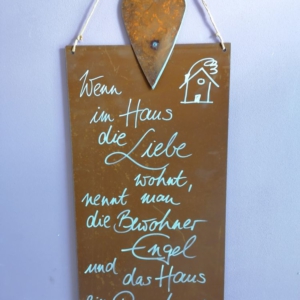 Wenn
im Haus
die
Liebe
wohnt,
nennt man
die Bewohner
Engel
und das Haus